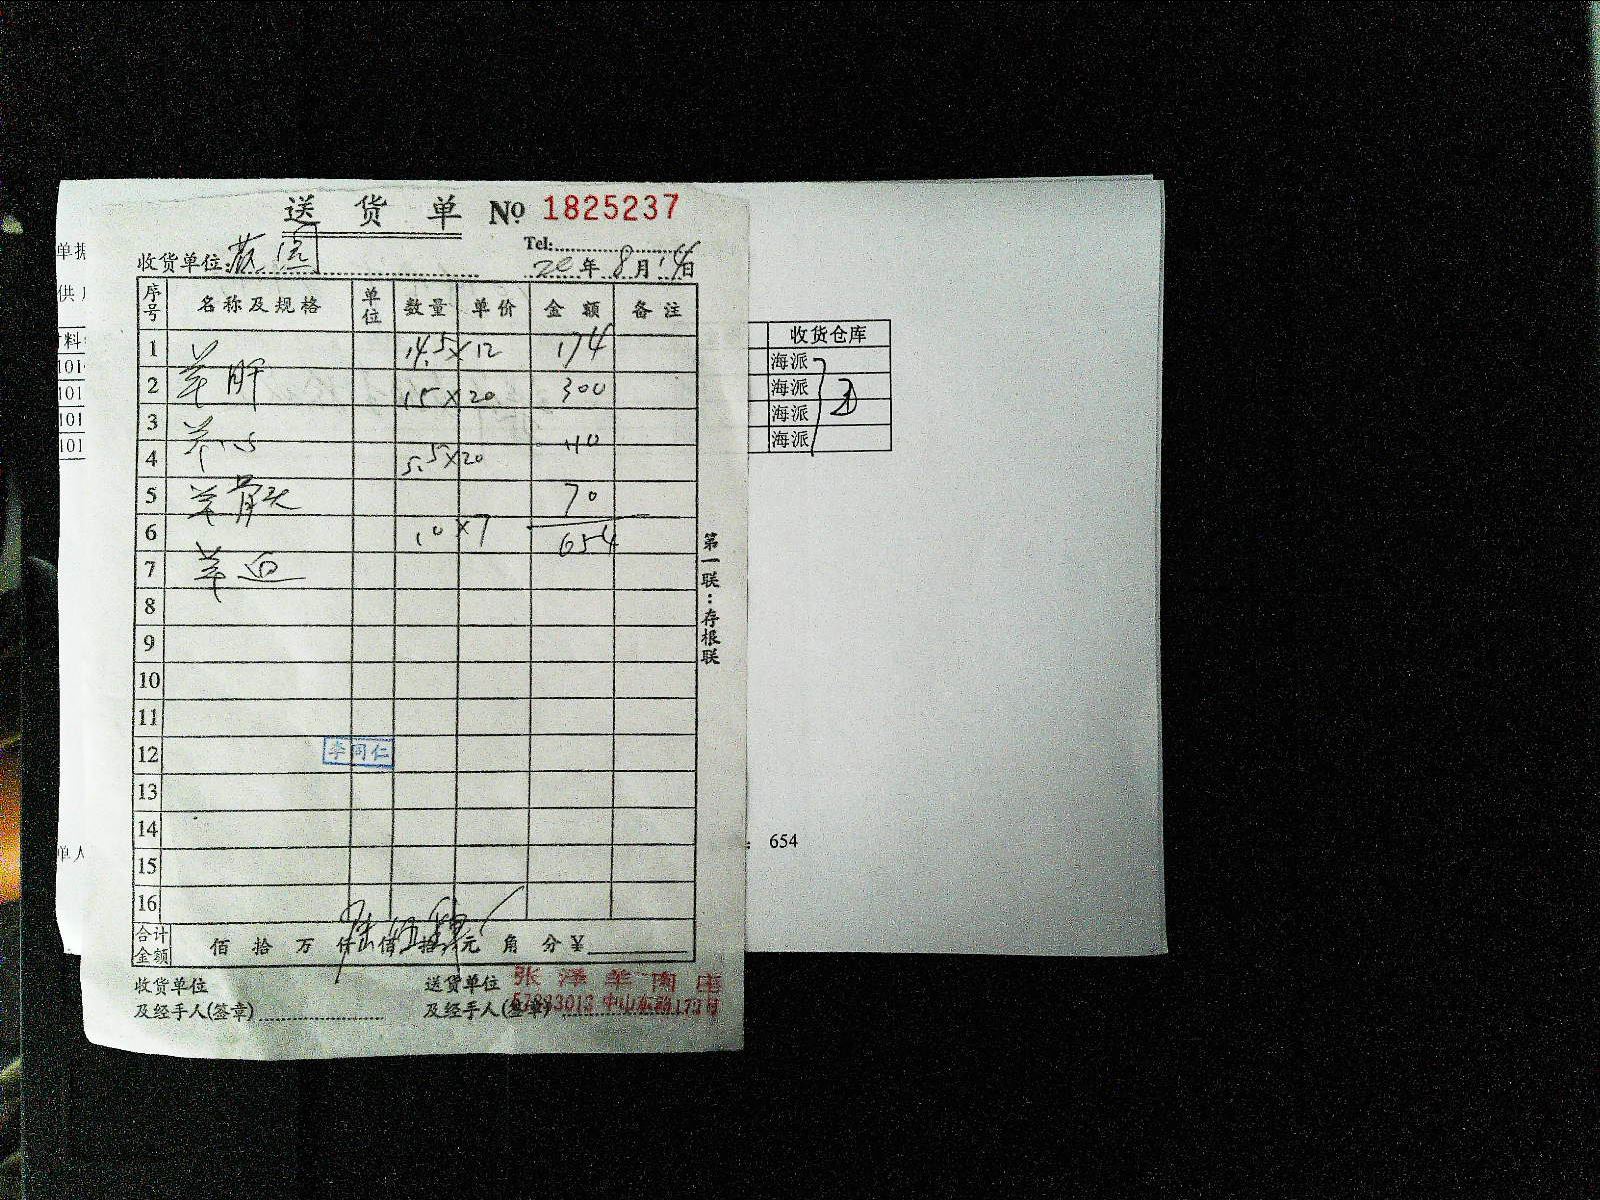 送货单 No 1825237
Tel:
收货单位:
20年8月14日
序号 名称及规格 单位 数量 单价 金额 备注
1 14.5×12 174
2 羊肝 15×20 300
3 羊心
4 5.5×20 110
5 羊 70
6 10×7 654
7 羊
8
9
10
11
12 李同仁
13
14
15
16
合计金额 佰拾万仟佰拾元角分¥
收货单位及经手人(签章)
送货单位及经手人(签章)
张泽羊肉庄
第一联:存根联
单据
供
料
101
101
101
101
单人
收货仓库
海派
海派
海派
海派
654